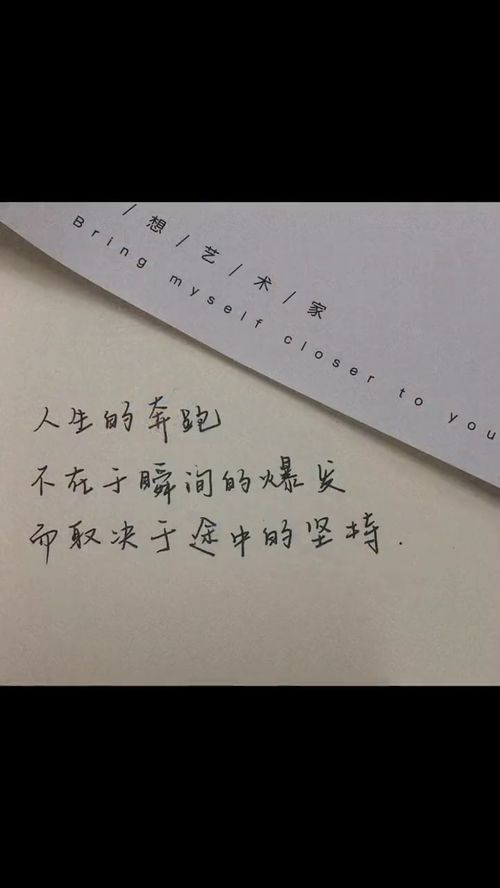 /想/艺/术/家
Bring myself closer to you
人生的奔跑
不在于瞬间的爆发
而取决于途中的坚持.